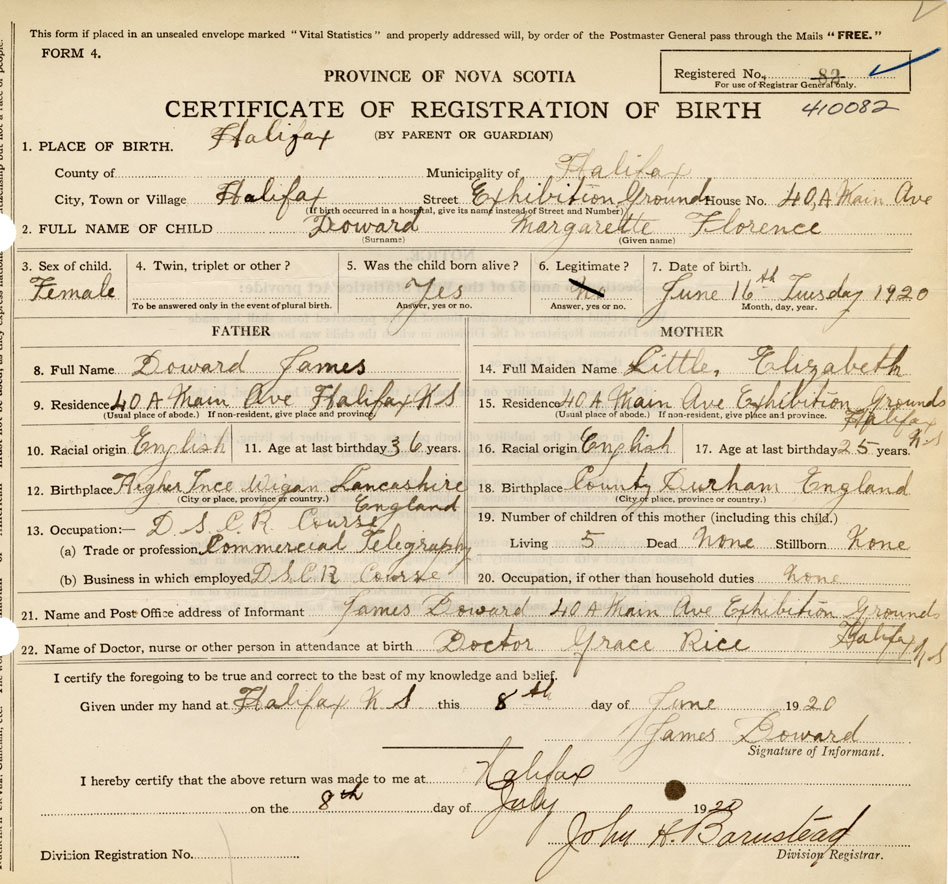 This form if placed in an unsealed envelope marked "Vital Statistics" and properly addressed will, by order of the Postmaster General pass through the Mails "FREE."
FORM 4.
Registered No. 82
For use of Registrar General only.
PROVINCE OF NOVA SCOTIA
CERTIFICATE OF REGISTRATION OF BIRTH 410082
(BY PARENT OR GUARDIAN)
1. PLACE OF BIRTH. Halifax
County of Municipality of Halifax
City, Town or Village Halifax Street Exhibition Grounds House No. 40, A Main Ave
(If birth occurred in a hospital, give its name instead of Street and Number)
2. FULL NAME OF CHILD Doward Margarette Florence
(Surname) (Given name)
3. Sex of child. 4. Twin, triplet or other? 5. Was the child born alive? 6. Legitimate? 7. Date of birth.
Female Yes June 16th Tuesday 1920
To be answered only in the event of plural birth. Answer, yes or no. Answer, yes or no. Month, day, year.
FATHER MOTHER
8. Full Name Doward James 14. Full Maiden Name Little, Elizabeth
9. Residence 40 A Main Ave Halifax N S 15. Residence 40 A Main Ave Exhibition Grounds
(Usual place of abode.) If non-resident, give place and province. (Usual place of abode.) If non-resident, give place and province. Halifax N S
10. Racial origin English 11. Age at last birthday 36 years. 16. Racial origin English 17. Age at last birthday 25 years.
12. Birthplace Higher Ince Wigan Lancashire England 18. Birthplace County Durham England
(City or place, province or country.) (City or place, province or country.)
13. Occupation:— D S C R Course 19. Number of children of this mother (including this child.)
(a) Trade or profession, Commercial Telegraphy Living 5 Dead None Stillborn None
(b) Business in which employed, D S C R Course 20. Occupation, if other than household duties none
21. Name and Post Office address of Informant James Doward 40 A Main Ave Exhibition Grounds
22. Name of Doctor, nurse or other person in attendance at birth Doctor Grace Rice Halifax N S
I certify the foregoing to be true and correct to the best of my knowledge and belief.
Given under my hand at Halifax N S this 8th day of June 1920
James Doward
Signature of Informant.
I hereby certify that the above return was made to me at Halifax
on the 8th day of July 1920
John A. Barnstead
Division Registration No. Division Registrar.